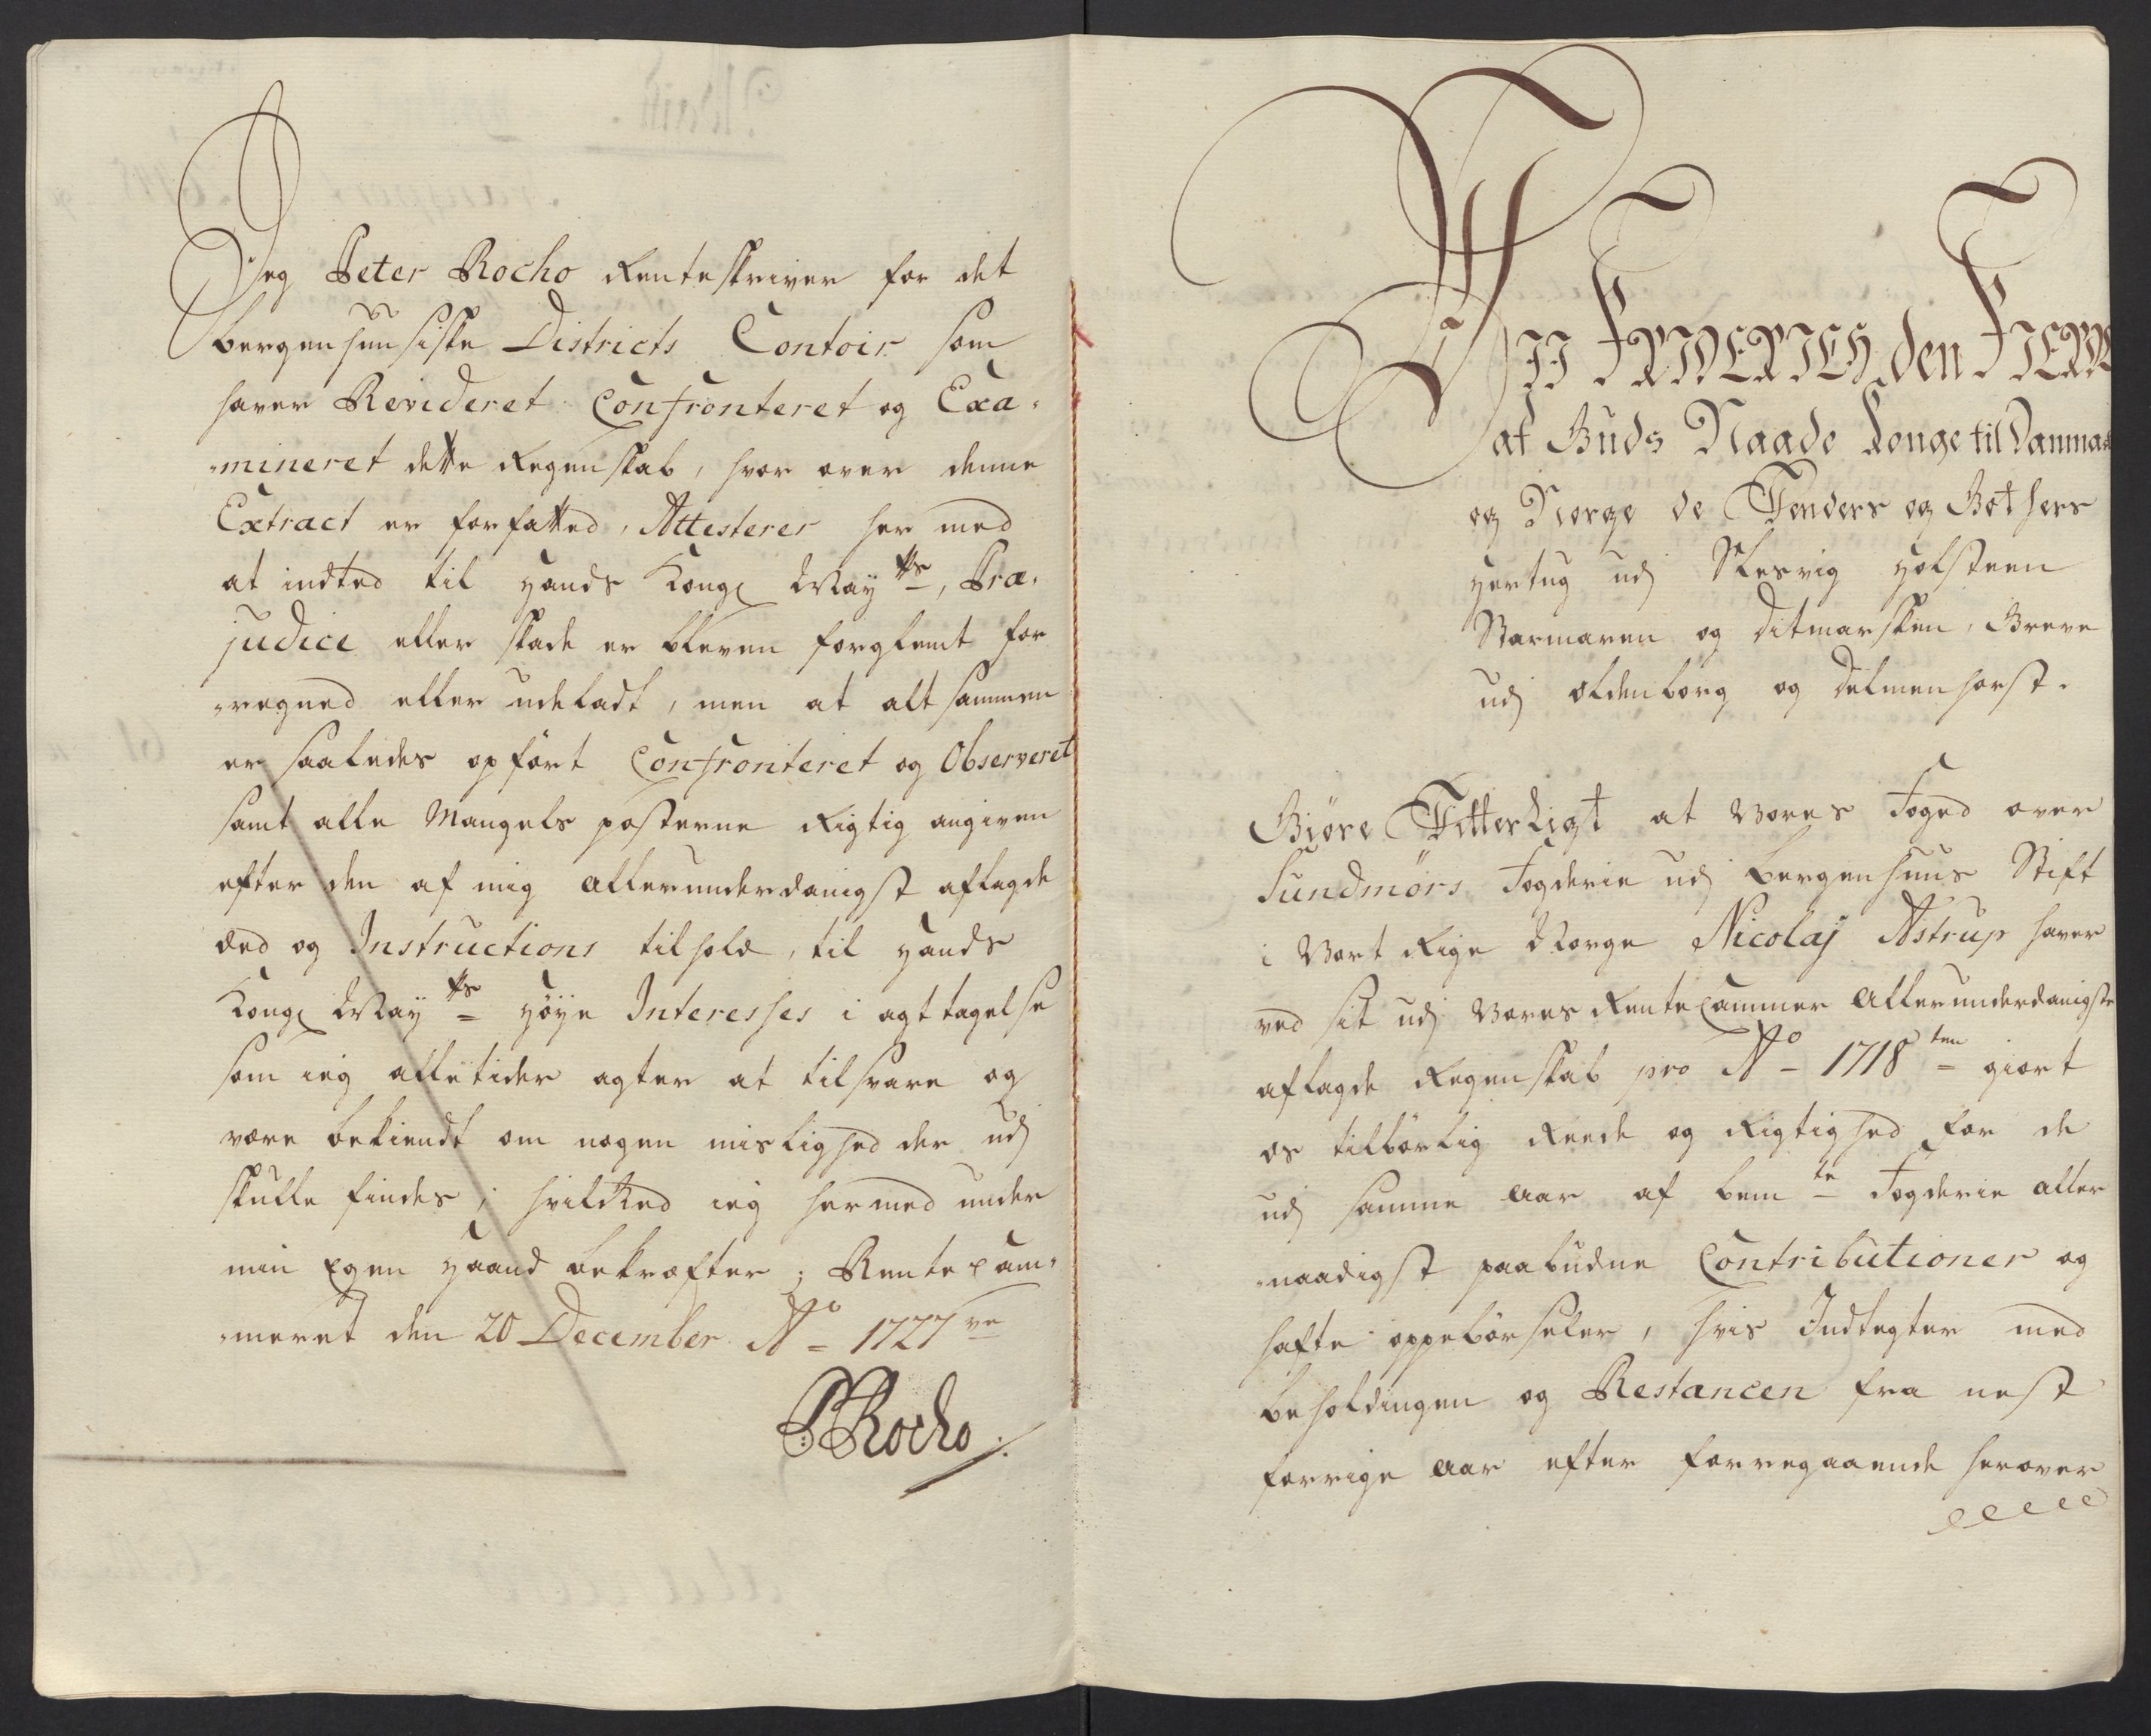 Jeg Peter Rocho Renteskriver for det
Bergenhuusiske Districts Contoir som
haver Revideret Confronteret og Exa-
-mineret dette Regenskab, hvor over denne
Extract er forfatted, Attesterer her med
at indted til Hands Kongl May:tts, Præ-
judice eller skade er bleven forglemt for
-regned eller udeladt, men at alt sammen
er saaledes opført Confronteret og Observeret
samt alle Mangels posterne Rigtig angiven
efter den af mig allerunderdanigst aflagde
Eed og Instructions tilhold, til Hands
Kongl May:tts Høye Interesses i agttagelse
som ieg alletider agter at tilsvare og
være bekiendt om nogen mislighed der udj
skulle findes, hvilcked ieg hermed under
min Egen Haand bekræfter; Rente Cam-
-meret den 20 December Ao 1727ve
PRocho
WII FRIDERICH den FIERDE
af Guds Naade Konge til Danmar
og Norge de Venders og Gothers
Hertug udj Slesvig Holsteen
Stormaren og Ditmarsken, Greve
udj Oldenborg og Delmenhorst.
Giøre Vitterligt at Vores Foged over
Sundmørs Fogderie udj Bergenhuus Stift
i Vort Rige Norge Nicolaj Astrup haver
ved sit udj Vores RenteCammer Allerunderdanigste
aflagde Regenskab pro Ao 1718ten giort
os tilbørlig Reede og Rigtighed for de
udj samme Aar af bemte Fogderie aller
-naadigst paabudne Contributioner og
hafte oppebørseler, hvis Indtegter med
beholdingen og Restancen fra nest
forrige Aar efter forregaaende herover